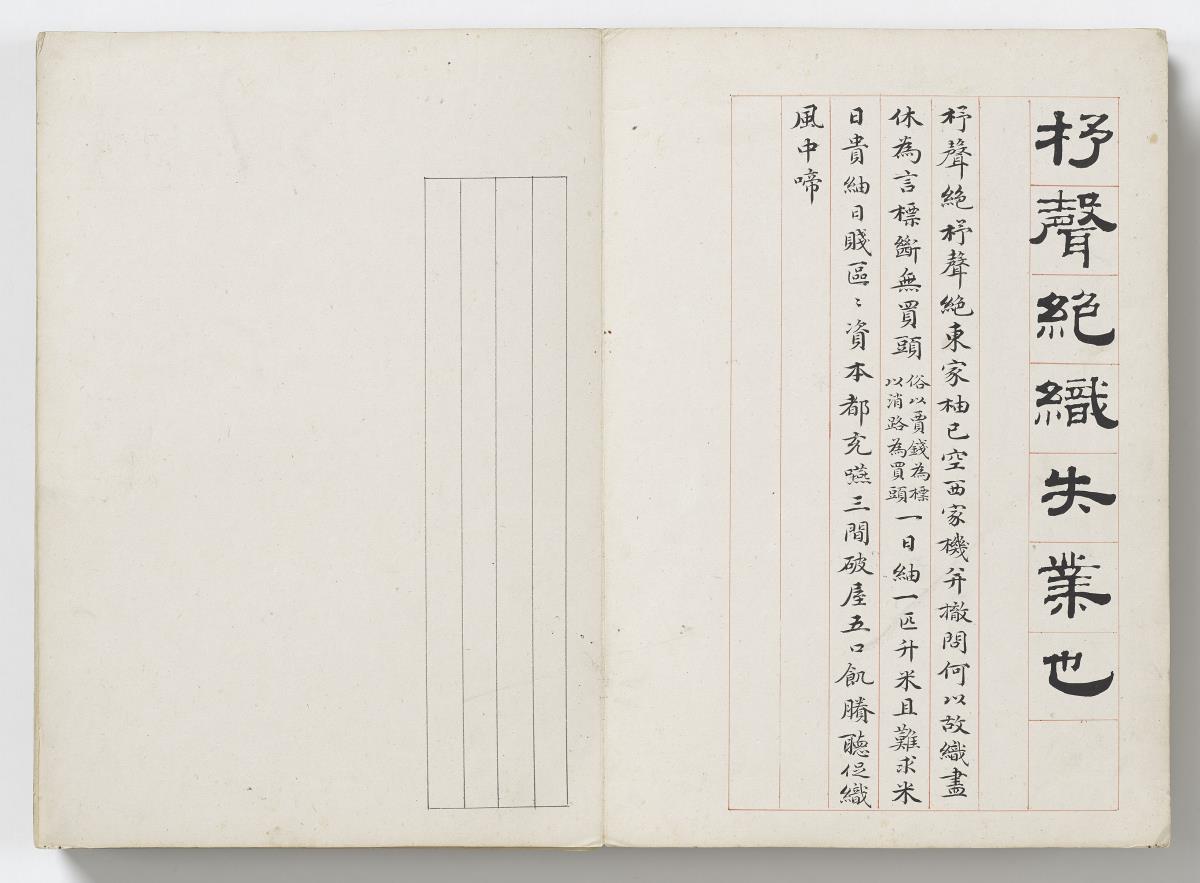 杼聲絶織失業也
杼聲絶杼聲絶東家柚已空西家機并撤問何以故織盡
休為言標斷無買頭俗以賈錢為標以消路為買頭一日紬一匹升米且難求米
日貴紬日賤區〻資本都充嚥三間破屋五口飢賸聽促織
風中啼